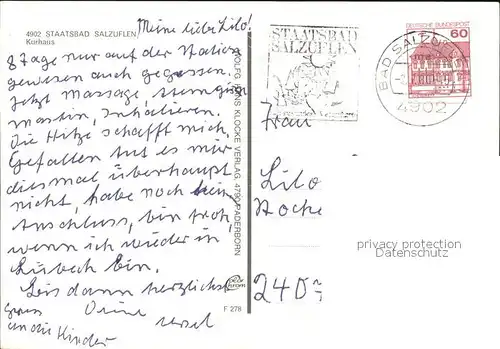 4902 STAATSBAD SALZUFLEN
Kurhaus
Meine liebe Lilo!
8 Tage nur auf der Station
gewesen auch gegessen.
Jetzt Massage,
Inhalieren.
Die Hitze schafft mich.
Gefallen tut es mir
diesmal überhaupt
nicht, habe noch kein
Anschluss, bin froh
wenn ich wieder in
Lübeck bin.
Bis dann herzlichst
Deine
Gruss
an die Kinder
WOLFGANG HANS KLOCKE VERLAG, 4790 PADERBORN
F 278
STAATSBAD
SALZUFLEN
DEUTSCHE BUNDESPOST
60
BAD SALZUFLEN
4902
Frau
Lilo
240
privacy protection
Datenschutz